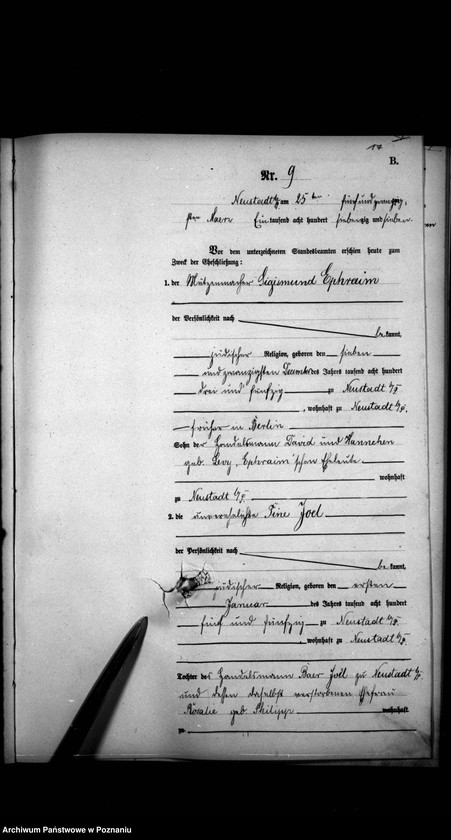 17
B.
Nr. 9
Neustadt b/P am 25ten fünfundzwanzig,
sten Maerz Eintausend acht hundert siebenzig und sieben.
Vor dem unterzeichneten Standesbeamten erschien heute zum
Zweck der Eheschließung:
1. der Mützenmacher Sigismund Ephraim
der Persönlichkeit nach
bekannt,
jüdischer Religion, geboren den sieben
und zwanzigsten Dezember des Jahres tausend acht hundert
drei und fünfzig zu Neustadt b/P
, wohnhaft zu Neustadt b/P.
früher in Berlin
Sohn der Handelsmann David und Hannchen
geb. Levy, Ephraim'schen Eheleute
wohnhaft
zu Neustadt b/P
2. die unverehelichte Tine Joel
der Persönlichkeit nach
bekannt,
jüdischer Religion, geboren den ersten
Januar des Jahres tausend acht hundert
fünf und fünfzig zu Neustadt b/P.
, wohnhaft zu Neustadt b/P
Tochter des Handelsmann Baer Joël zu Neustadt b/P.
und dessen daselbst verstorbenen Ehefrau
Rosalie geb. Philipp wohnhaft
zu
Archiwum Państwowe w Poznaniu